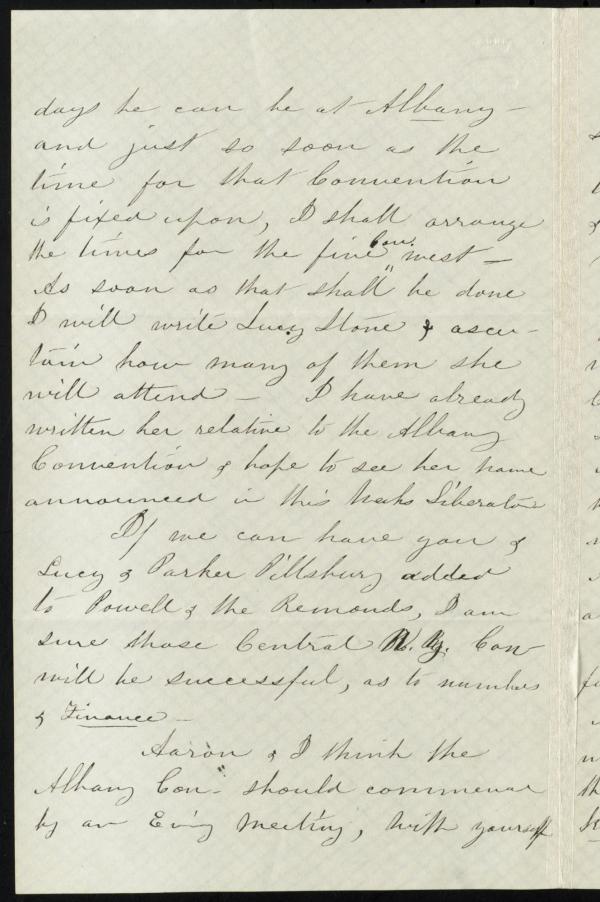 days he can be at Albany –
and just so soon as the
time for that Convention
is fixed upon, I shall arrange
the times for the five Con. west –
As soon as that shall be done
I will write Lucy Stone & ascer-
tain how many of them she
will attend – I have already
written her relative to the Albany
Convention & hope to see her name
announced in this weeks Liberator
If we can have you &
Lucy & Parker Pillsbury added
to Powell & the Remonds, I am
sure those Central N. Y. Con
will be successful, as to numbers
& Finance –
Aaron & I think the
Albany Con- should commence
by an Ev'g meeting, with yourself